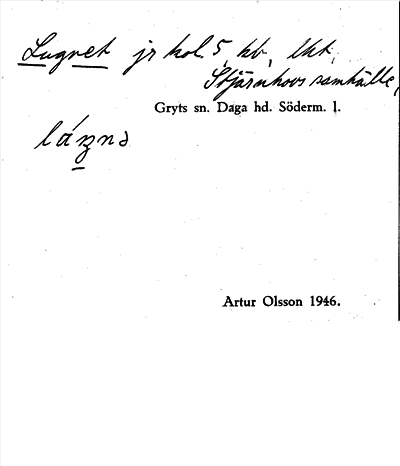 Lugnet jr kol. 5, hb, lht,
Stjärnhovs samhälle,
Gryts sn. Daga hd. Söderm. l.
Artur Olsson 1946.